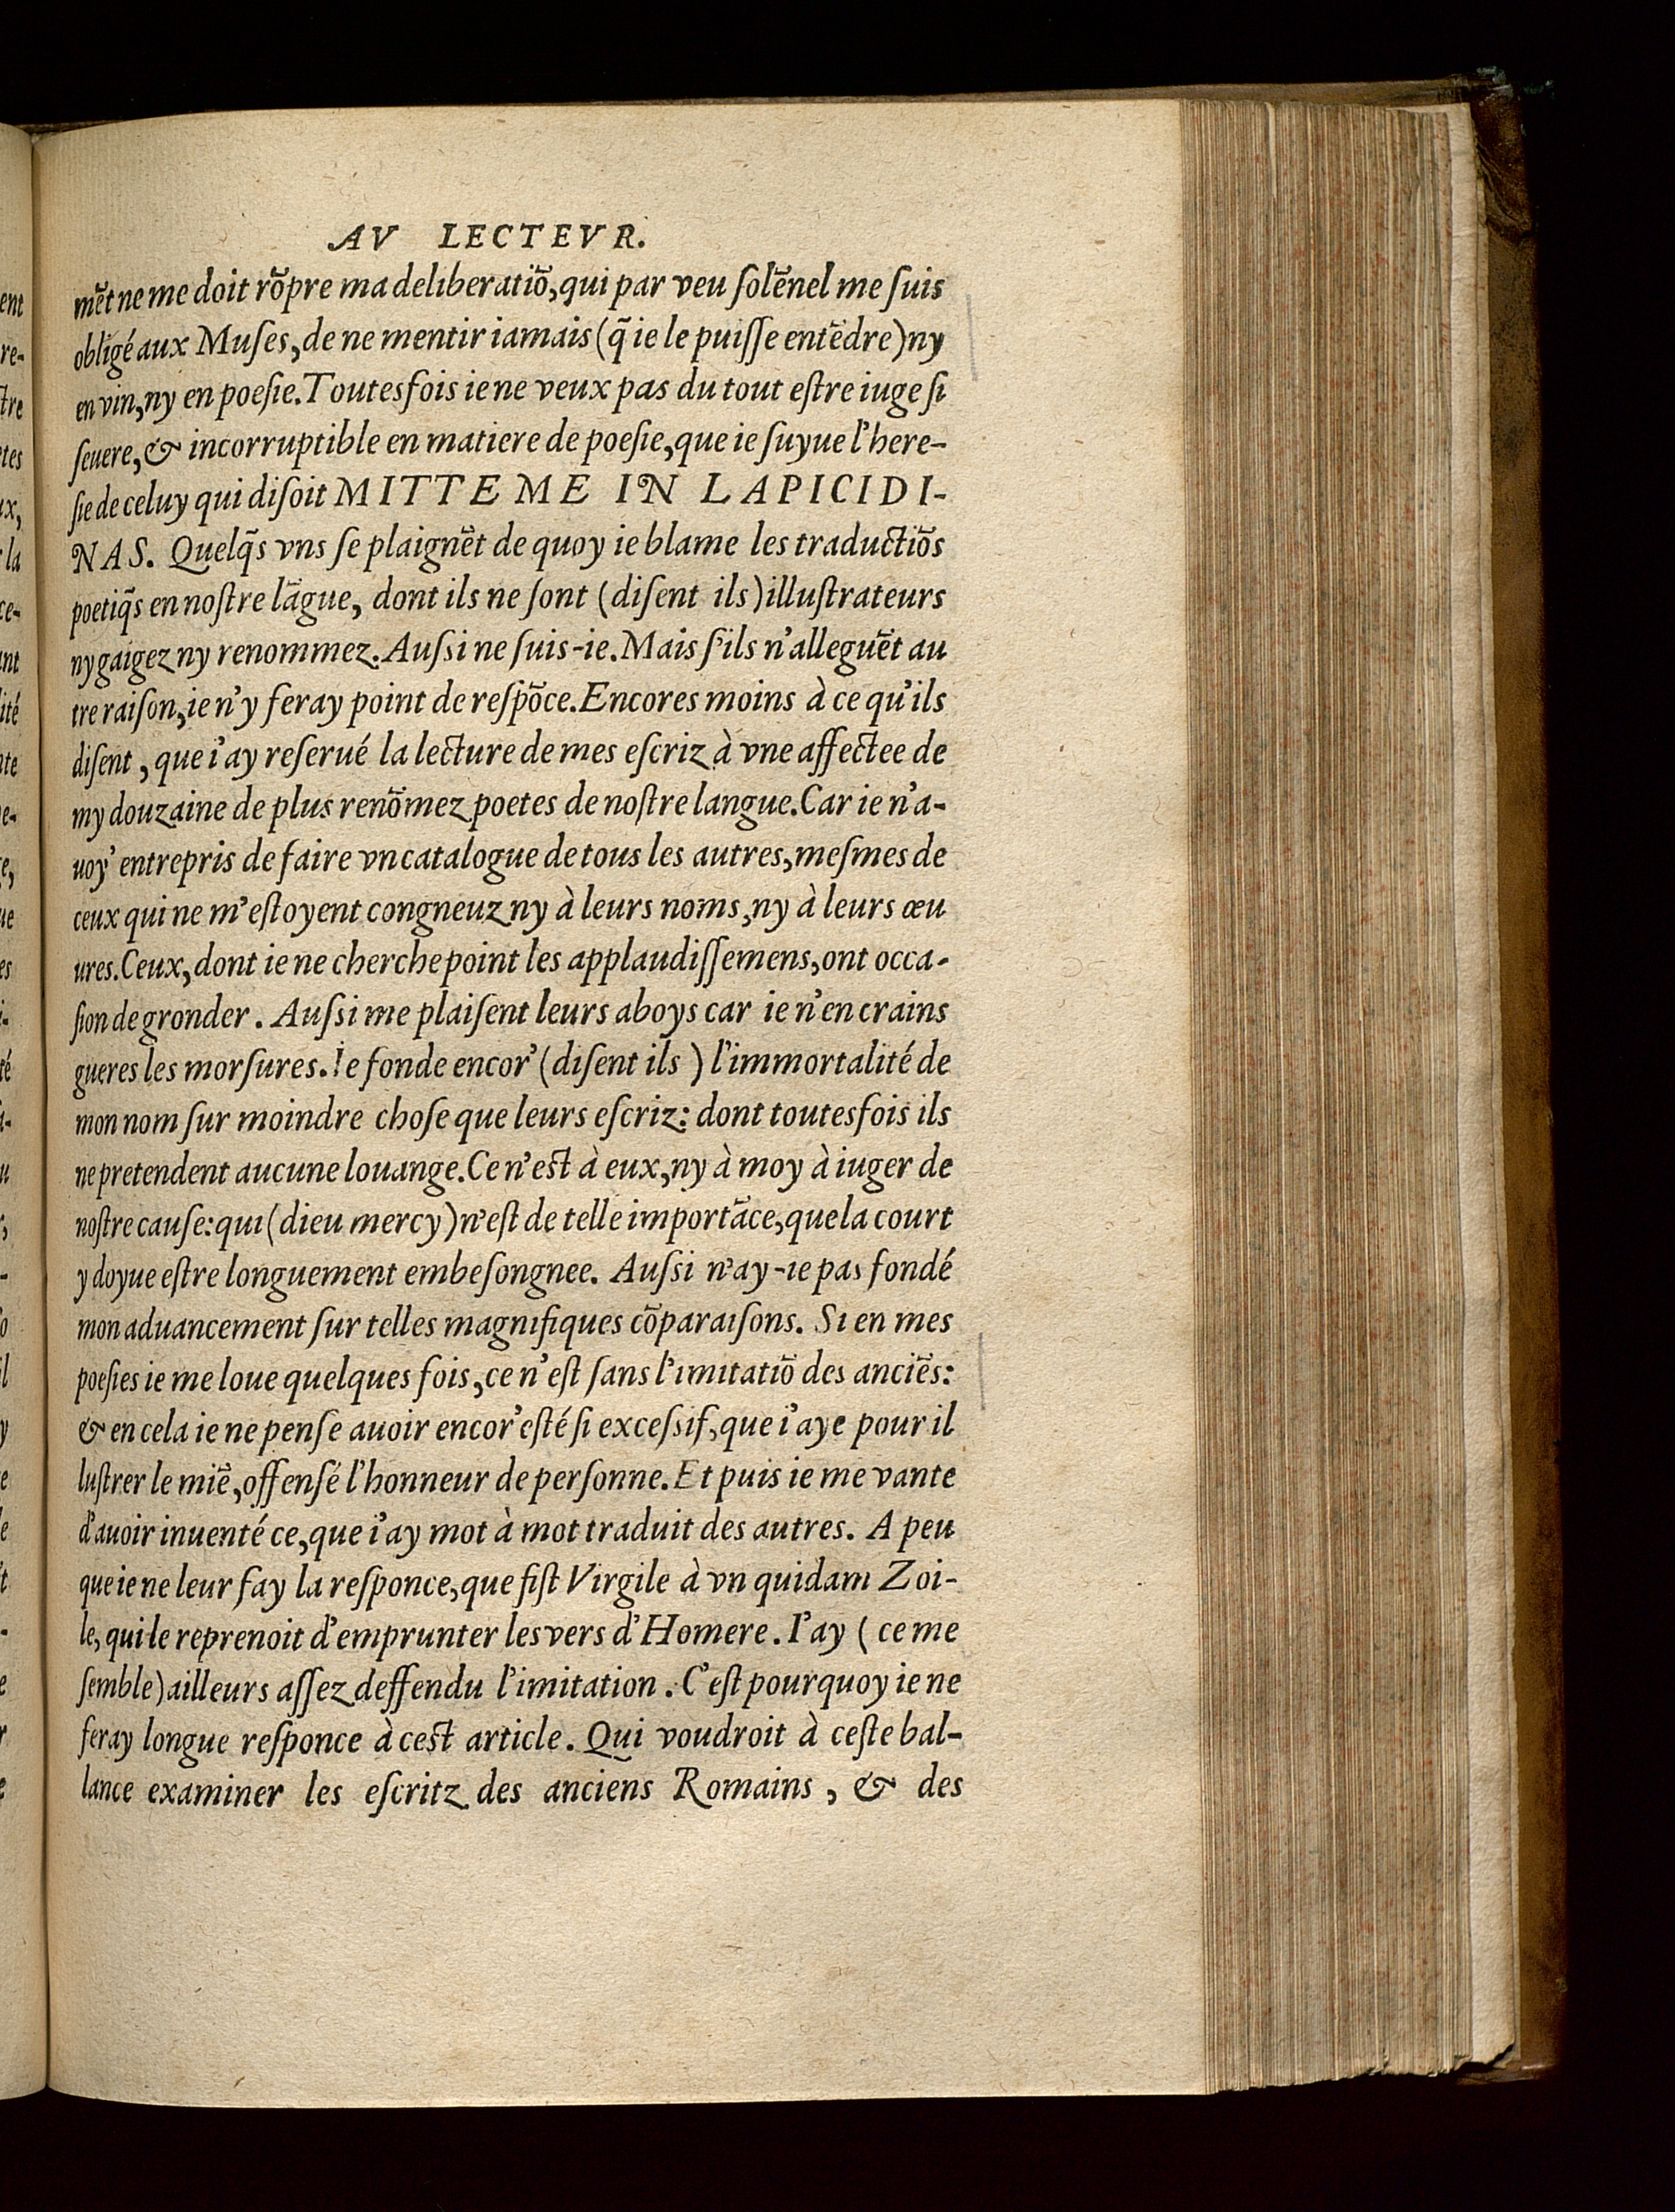 AV LECTEVR.
mẽt ne me doit rõpre ma deliberatiõ, qui par veu ſolẽnel me ſuis
obligé aux Muſes, de ne mentir iamais (q̃ ie le puiſſe entẽdre) ny
en vin, ny en poeſie. Toutesfois ie ne veux pas du tout eſtre iuge ſi
ſeuere, & incorruptible en matiere de poeſie, que ie ſuyue l'here-
ſie de celuy qui diſoit MITTE ME IN LAPICIDI-
NAS. Quelq̃s vns ſe plaignẽt de quoy ie blame les traductiõs
poetiq̃s en noſtre lãgue, dont ils ne ſont (diſent ils) illuſtrateurs
ny gaigez ny renommez. Auſsi ne ſuis-ie. Mais ſ'ils n'alleguẽt au
tre raiſon, ie n'y feray point de reſpõce. Encores moins à ce qu'ils
diſent, que i'ay reſerué la lecture de mes eſcriz à vne affectee de
my douzaine de plus renõmez poetes de noſtre langue. Car ie n'a-
uoy' entrepris de faire vn catalogue de tous les autres, meſmes de
ceux qui ne m'eſtoyent congneuz ny à leurs noms, ny à leurs œu
ures. Ceux, dont ie ne cherche point les applaudiſſemens, ont occa-
ſion de gronder. Auſsi me plaiſent leurs aboys car ie n'en crains
gueres les morſures. Ie fonde encor' (diſent ils) l'immortalité de
mon nom ſur moindre choſe que leurs eſcriz: dont toutesfois ils
ne pretendent aucune louange. Ce n'eſt à eux, ny à moy à iuger de
noſtre cauſe: qui (dieu mercy) n'eſt de telle importãce, que la court
y doyue eſtre longuement embeſongnee. Auſsi n'ay-ie pas fondé
mon aduancement ſur telles magnifiques cõparaiſons. Si en mes
poeſies ie me loue quelques fois, ce n'eſt ſans l'imitatiõ des anciẽs:
& en cela ie ne penſe auoir encor' eſté ſi exceſsif, que i'aye pour il
luſtrer le miẽ, offenſé l'honneur de perſonne. Et puis ie me vante
d'auoir inuenté ce, que i'ay mot à mot traduit des autres. A peu
que ie ne leur fay la reſponce, que fiſt Virgile à vn quidam Zoi-
le, qui le reprenoit d'emprunter les vers d'Homere. I'ay (ce me
ſemble) ailleurs aſſez deffendu l'imitation. C'eſt pourquoy ie ne
feray longue reſponce à ceſt article. Qui voudroit à ceſte bal-
lance examiner les eſcritz des anciens Romains, & des